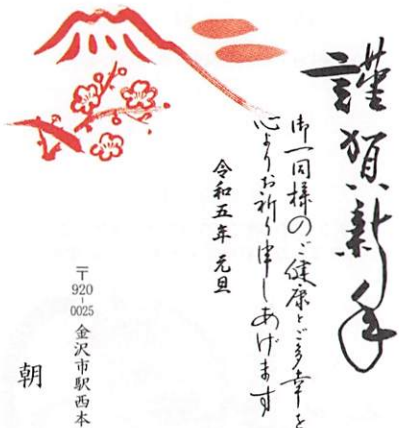 謹賀新年
御一同様のご健康とご多幸を
心よりお祈り申しあげます
令和五年 元旦
〒920-0025 金沢市駅西本
朝